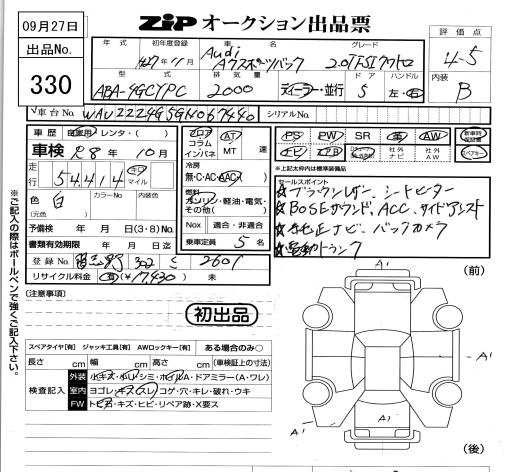 09月27日
出品No.
330
ZIP オークション出品票
評価点
4-5
内装
B
年式 初年度登録 車名 グレード
H27年11月 Audi A7スポーツバック 2.0TFSIクワトロ
型式 排気量 ドア ハンドル
ABA-4GCYPC 2000 ディーラー・並行 5 左・右
車台No. WAUZZZ4G5GN067440 シリアルNo.
車歴 自家用 レンタ・( )
車検 R8年10月
走行 54,414 キロ マイル
色 白 (元色) カラーNo. 内装色
予備検 年 月 日(3・8)No.
書類有効期限 年 月 日迄
登録No. 習志野 302 さ 2601
リサイクル料金 済(¥17,430) 未
フロア コラム インパネ AT MT 速
冷房
無・C・AC・AAC
燃料
ガソリン・軽油・電気・その他( )
Nox 適合・非適合
乗車定員 5 名
PS PW SR 革 AW 新車時保証書
ナビ エアB 社外ナビ 社外AW スペアキー
※上記太枠内は標準装備品
セールスポイント
★ブラウンレザー、シートヒーター
★BOSEサウンド、ACC、サイドアシスト
★純正ナビ、バックカメラ
★電動トランク
※ご記入の際はボールペンで強くご記入下さい。
(注意事項)
初出品
スペアタイヤ[有] ジャッキ工具[有] AWロックキー[有] ある場合のみ○
長さ cm 幅 cm 高さ cm (車検証上の寸法)
検査記入
外装 小キズ・小ハリ・シミ・ホイルA・ドアミラー(A・ワレ)
室内 ヨゴレ・キズ(スレ)コゲ・穴・キレ・破れ・ウキ
FW トビ石・キズ・ヒビ・リペア跡・X要ス
(前)
A'
A'
A'
A'
(後)